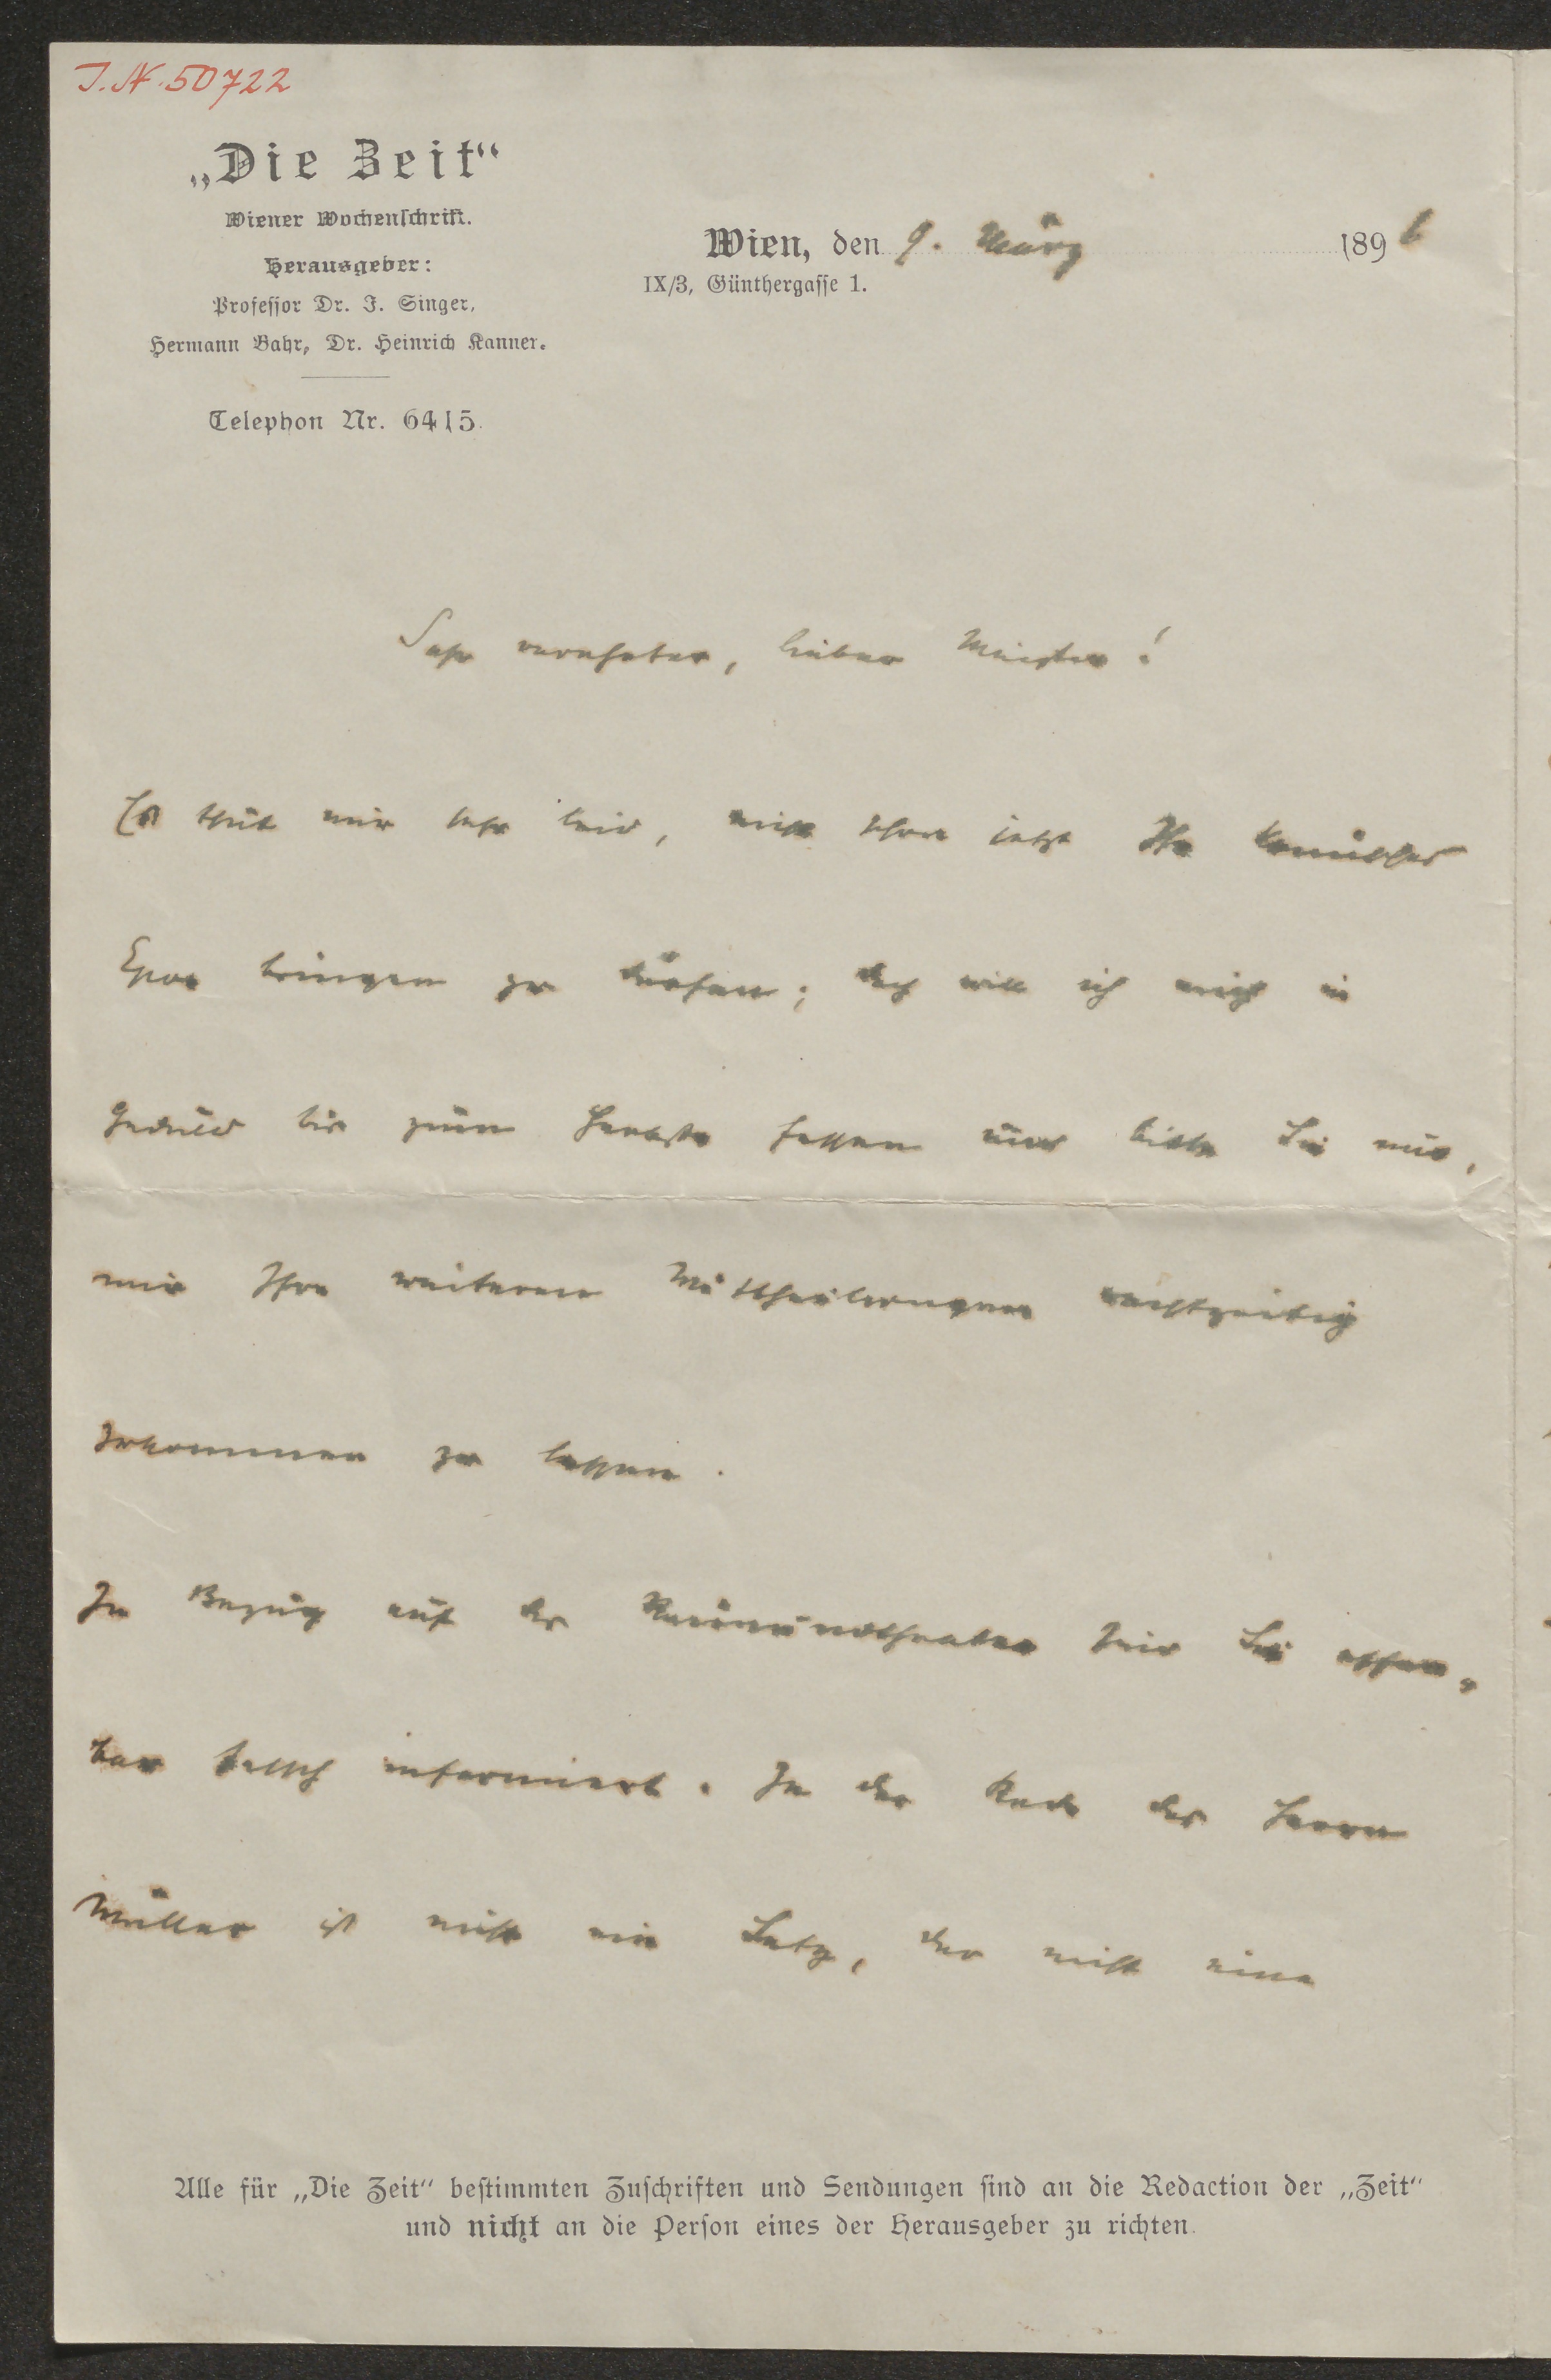 J. N. 50722
„Die Zeit“
Wiener Wochenschrift.
Herausgeber:
Professor Dr. J. Singer,
Hermann Bahr, Dr. Heinrich Kanner.
Telephon Nr. 6415.
Wien, den 9. März 1896
IX/3, Günthergasse 1.
Sehr verehrter, lieber Meister!
Es thut mir sehr leid, nicht schon jetzt Ihr komisches
Epos bringen zu dürfen; doch will ich mich in
Geduld bis zum Herbste fassen und bitte Sie nur,
mir Ihre weiteren Mittheilungen rechtzeitig
zukommen zu lassen.
In Bezug auf das Raimundtheater sind Sie offen-
bar falsch informiert. In der Rede des Herrn
Müller ist nicht ein Satz, der nicht eine
Alle für „Die Zeit“ bestimmten Zuschriften und Sendungen sind an die Redaction der „Zeit“
und nicht an die Person eines der Herausgeber zu richten.